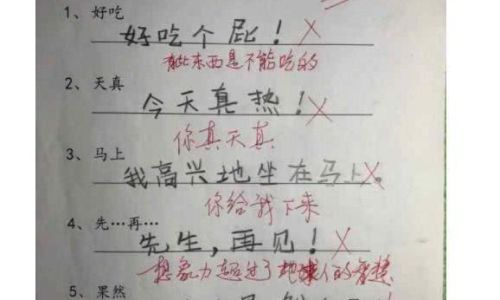 1、好吃
好吃个屁！×
有些东西是不能吃的
2、天真
今天真热！×
你真天真
3、马上
我高兴地坐在马上。×
你给我下来
4、先…再…
先生，再见！×
想象力超过了地球人的智慧
5、果然